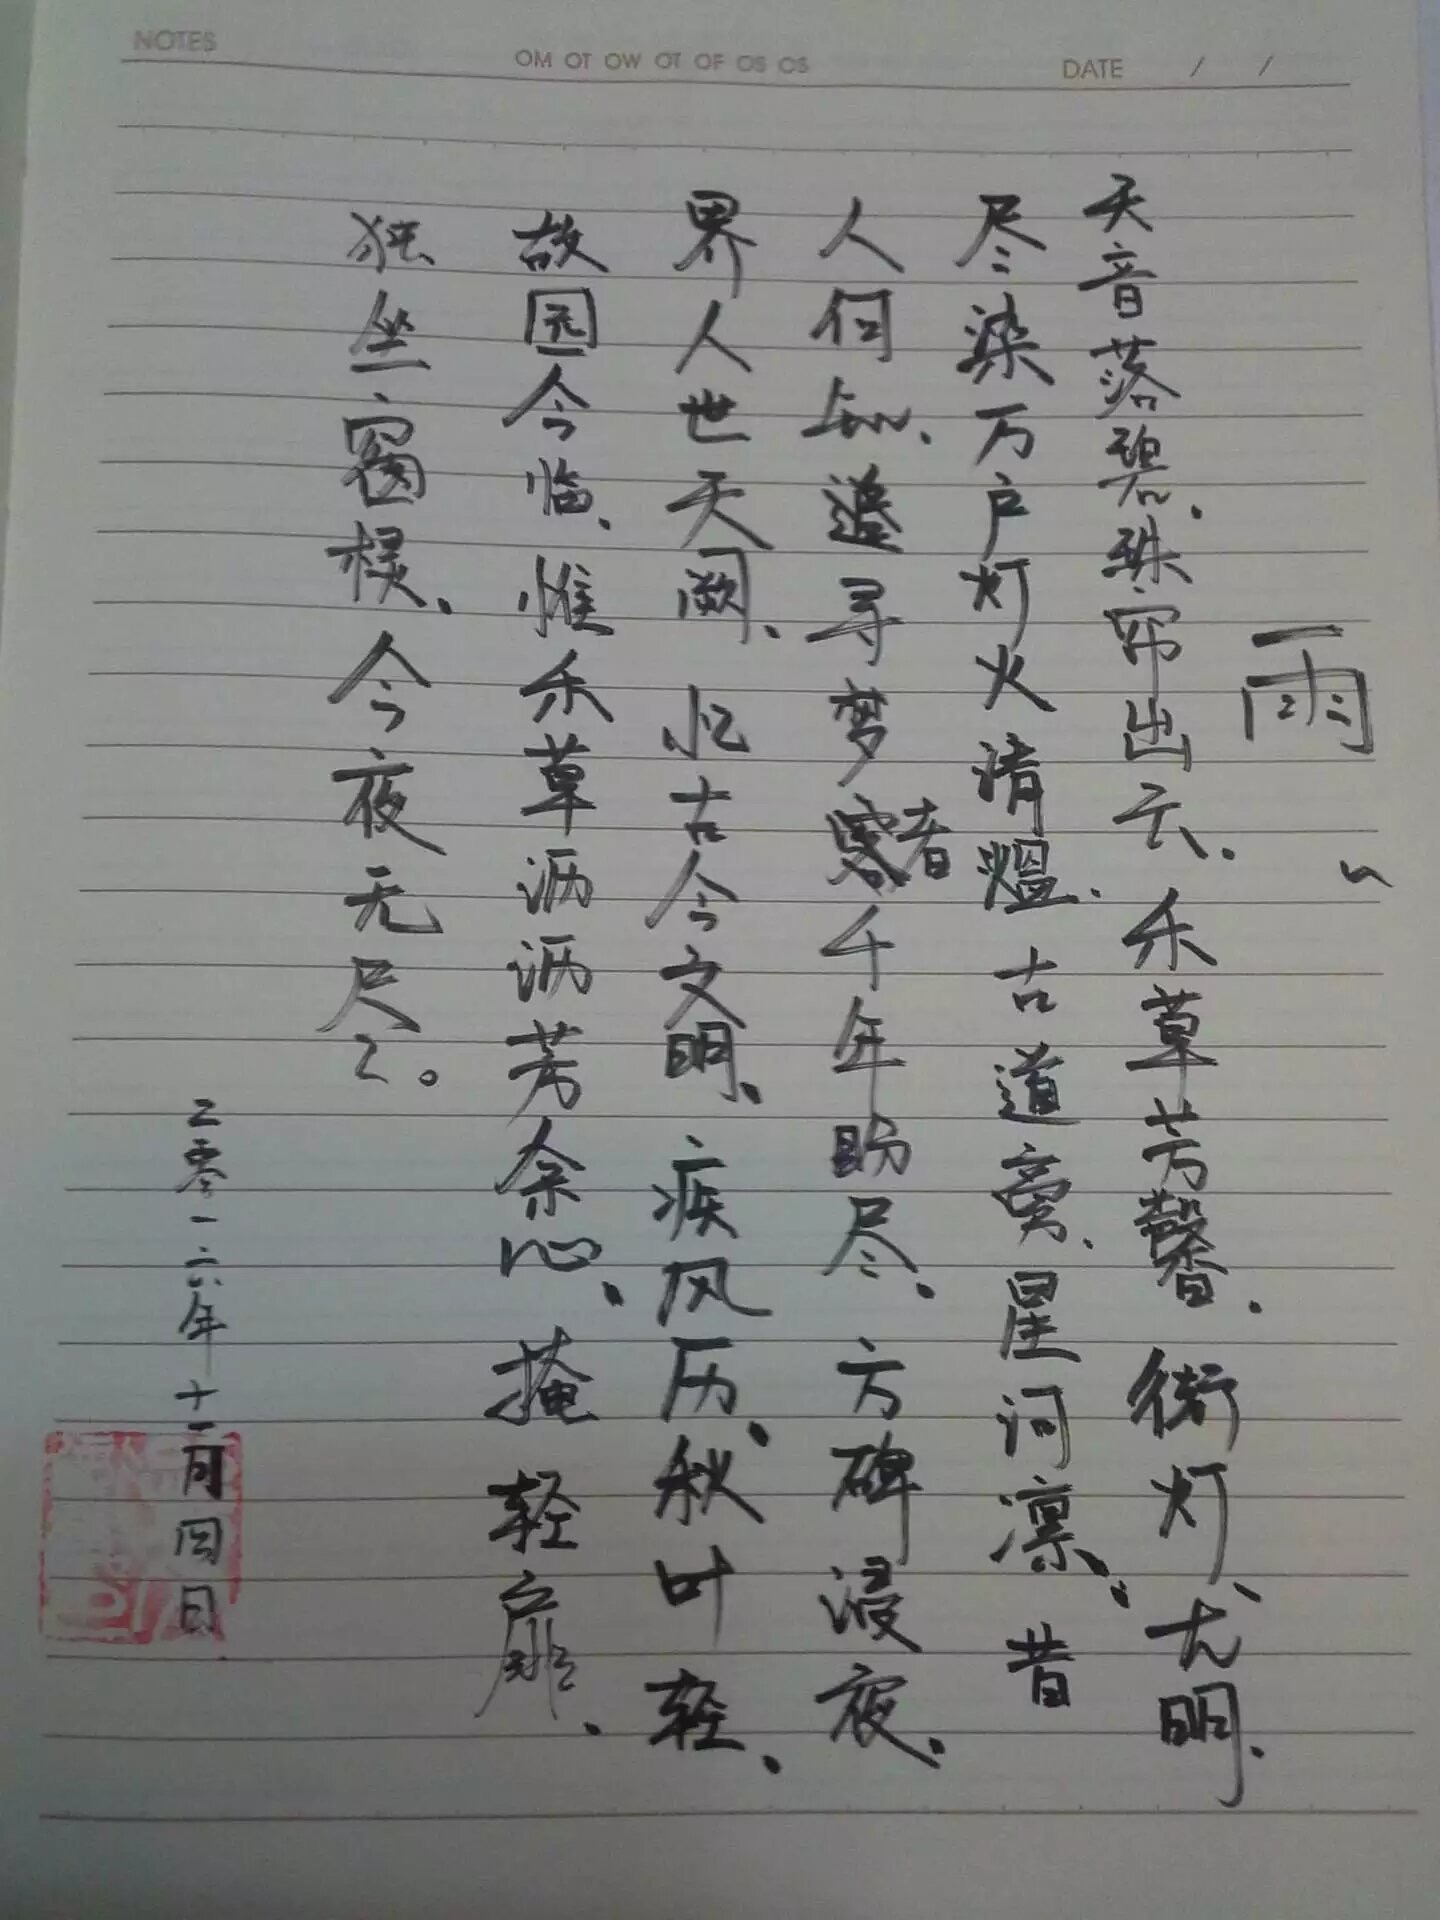 NOTES
OM OT OW OT OF OS OS
DATE / /
雨
天音落碧.珠帘出云.禾草芳馨.街灯、尤明.
尽染万户灯火清煴.古道宽.星河凛.昔
人何知.追寻梦者千年盼尽.方碑浸夜.
界人世天阙.忆古今文明.疾风历.秋叶轻.
故园今临.惟禾草沥沥芳余心.掩轻扉.
独坐窗棂.今夜无尽。
二零一六年十一月四日